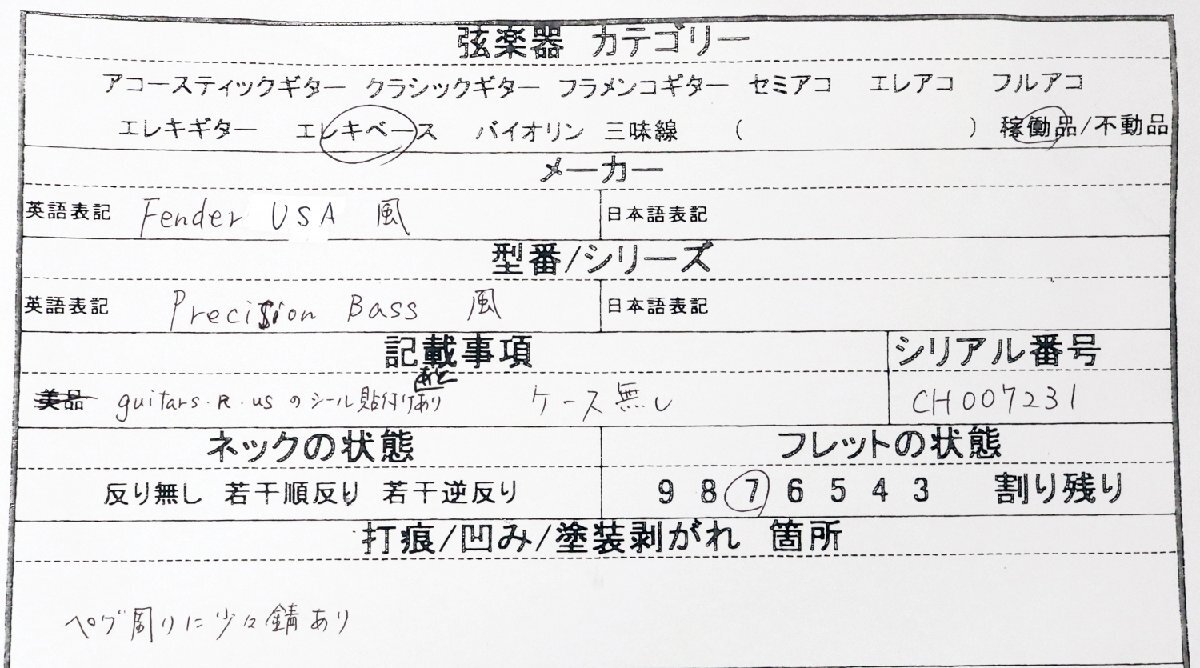 弦楽器 カテゴリー
アコースティックギター クラシックギター フラメンコギター セミアコ エレアコ フルアコ
エレキギター エレキベース バイオリン 三味線 ( ) 稼働品/不動品
メーカー
英語表記 Fender USA 風 日本語表記
型番/シリーズ
英語表記 Precision Bass 風 日本語表記
記載事項 シリアル番号
あと
美品 guitars・R・us のシール貼付けあり ケース無し CH007231
ネックの状態 フレットの状態
反り無し 若干順反り 若干逆反り 9 8 7 6 5 4 3 割り残り
打痕/凹み/塗装剥がれ 箇所
ペグ周りに少々錆あり